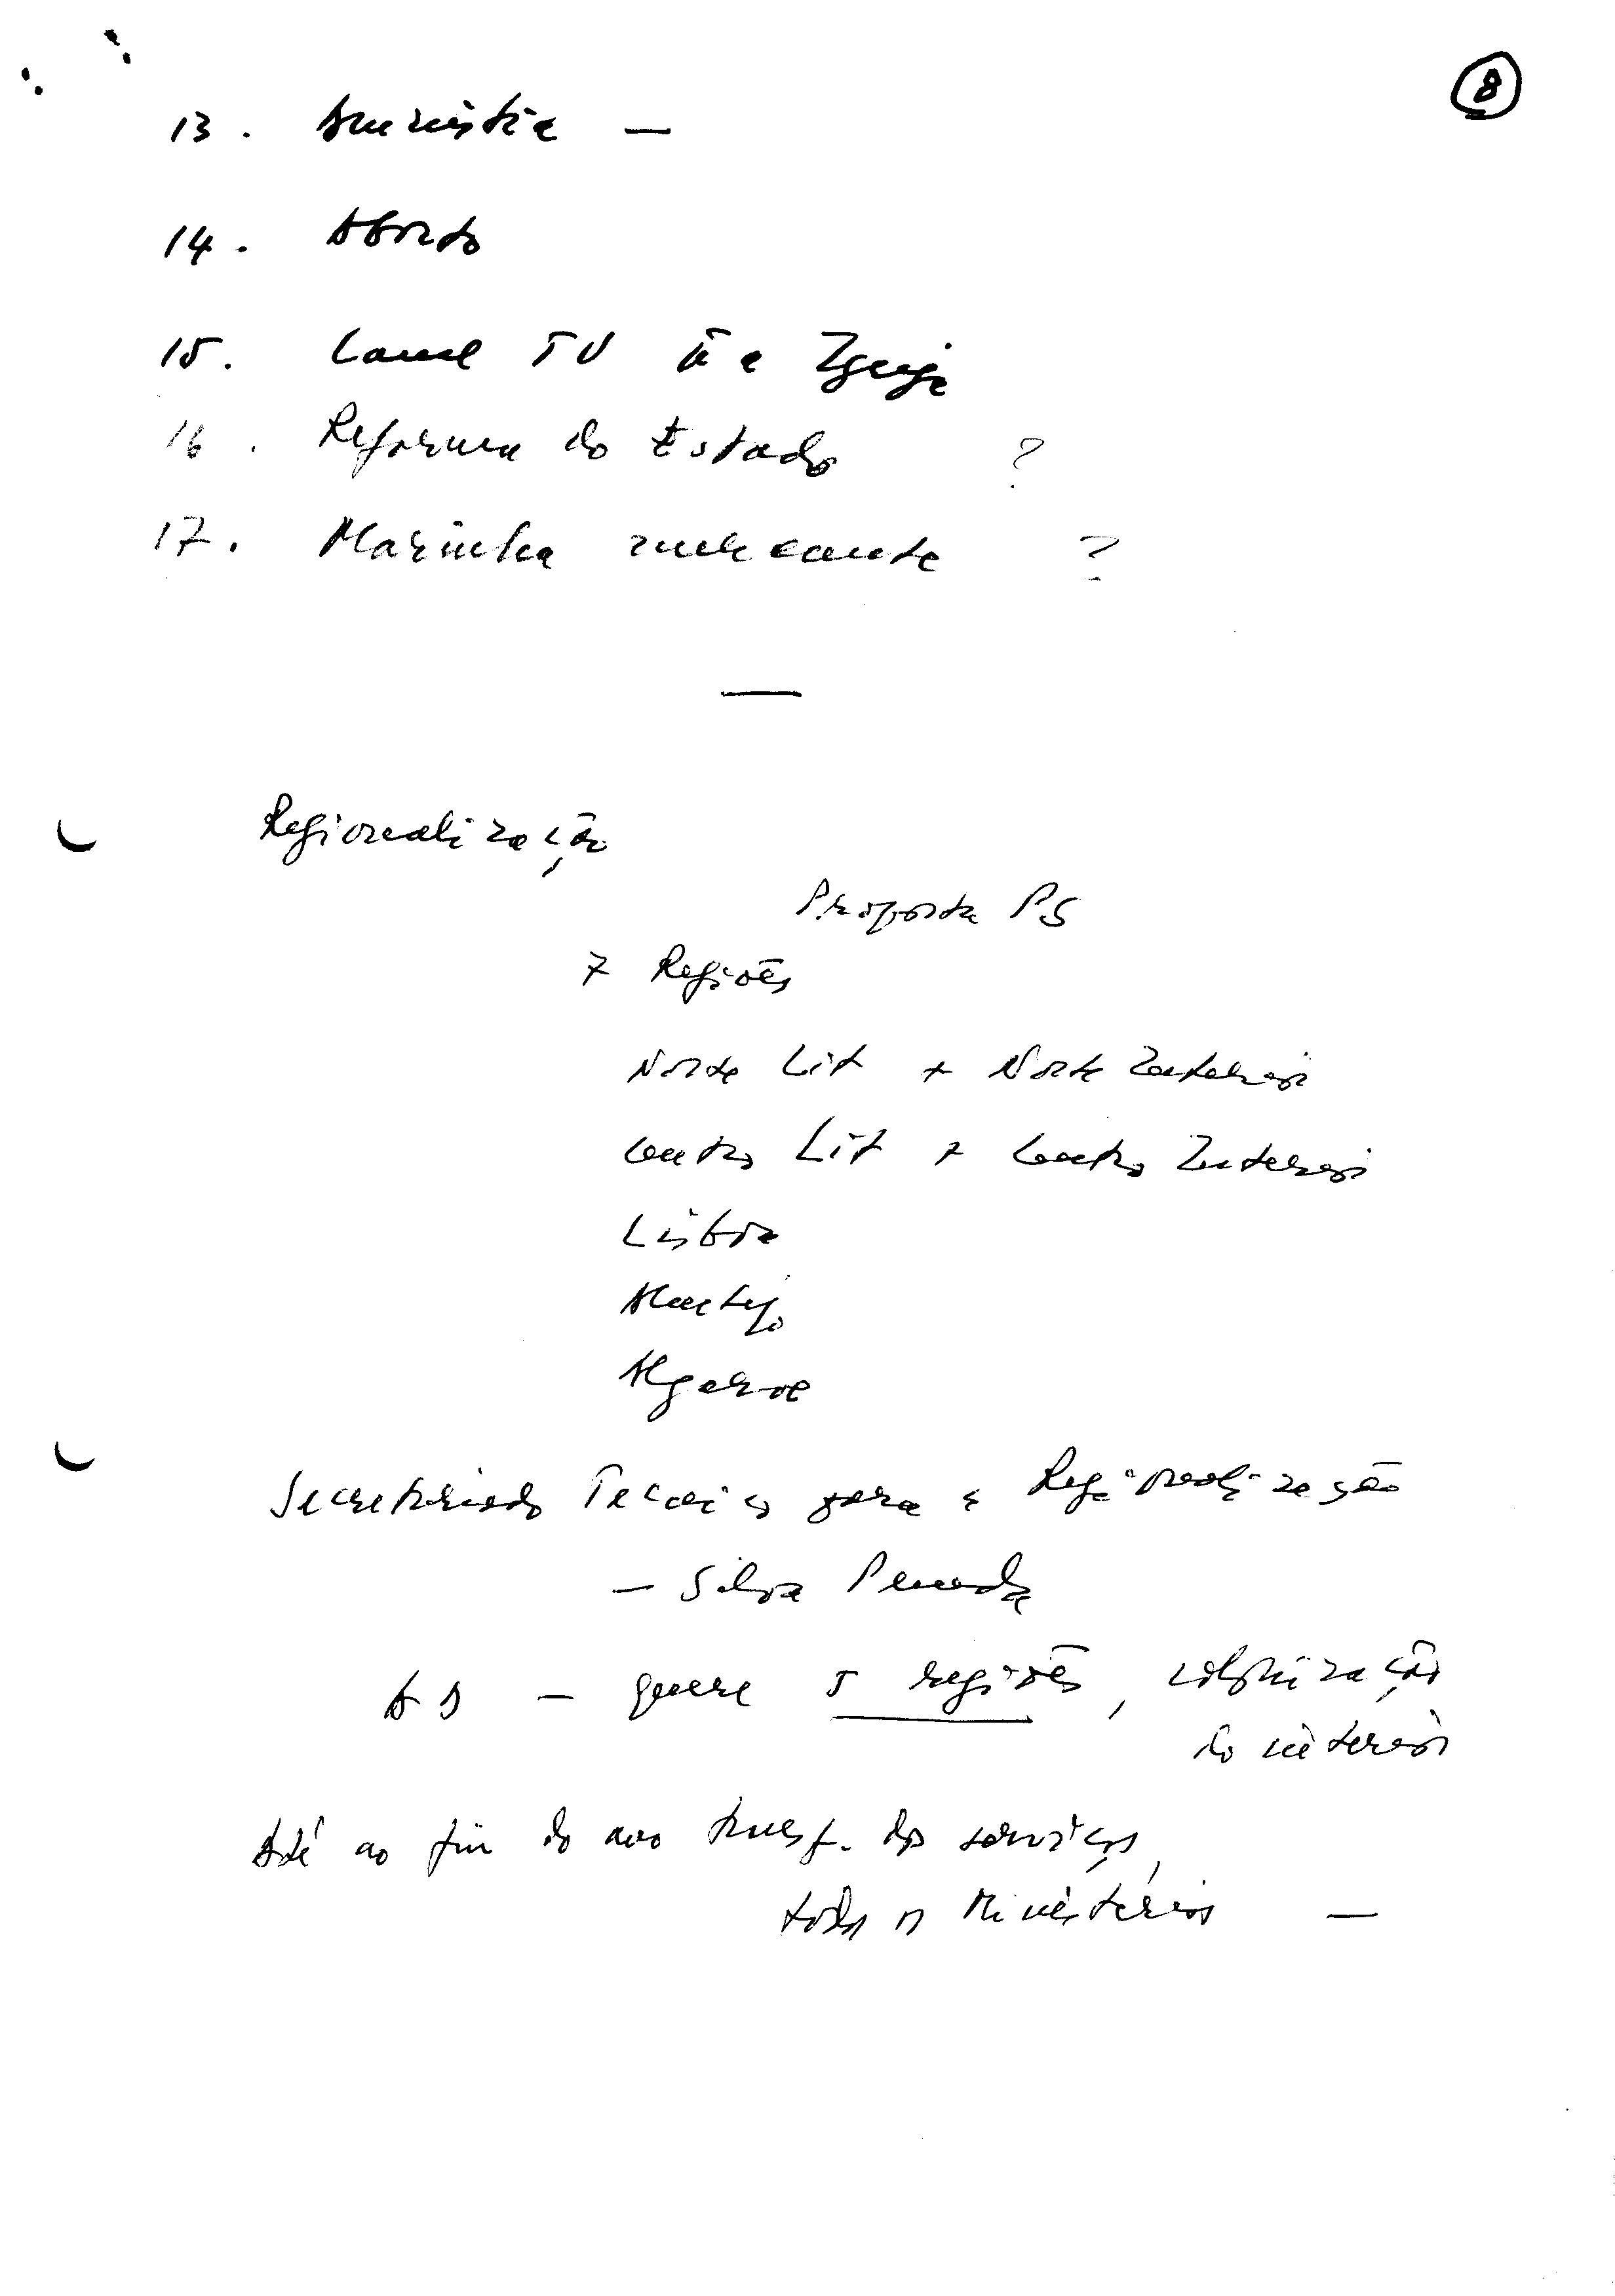 8
13. Amnistia —
14. Aborto
15. Canal TV à Igreja
16. Reforma do Estado ?
17. Marinha mercante ?
—
Regionalização
Proposta PS
7 Regiões
Norte Lit + Norte Interior
Centro Lit + Centro Interior
Lisboa
Alentejo
Algarve
Secretariado Técnico para a Regionalização
— Silva Peneda
AD — quere 5 regiões, valorização
do interior
Até ao fim do ano transf. dos serviços,
todos os Ministérios —